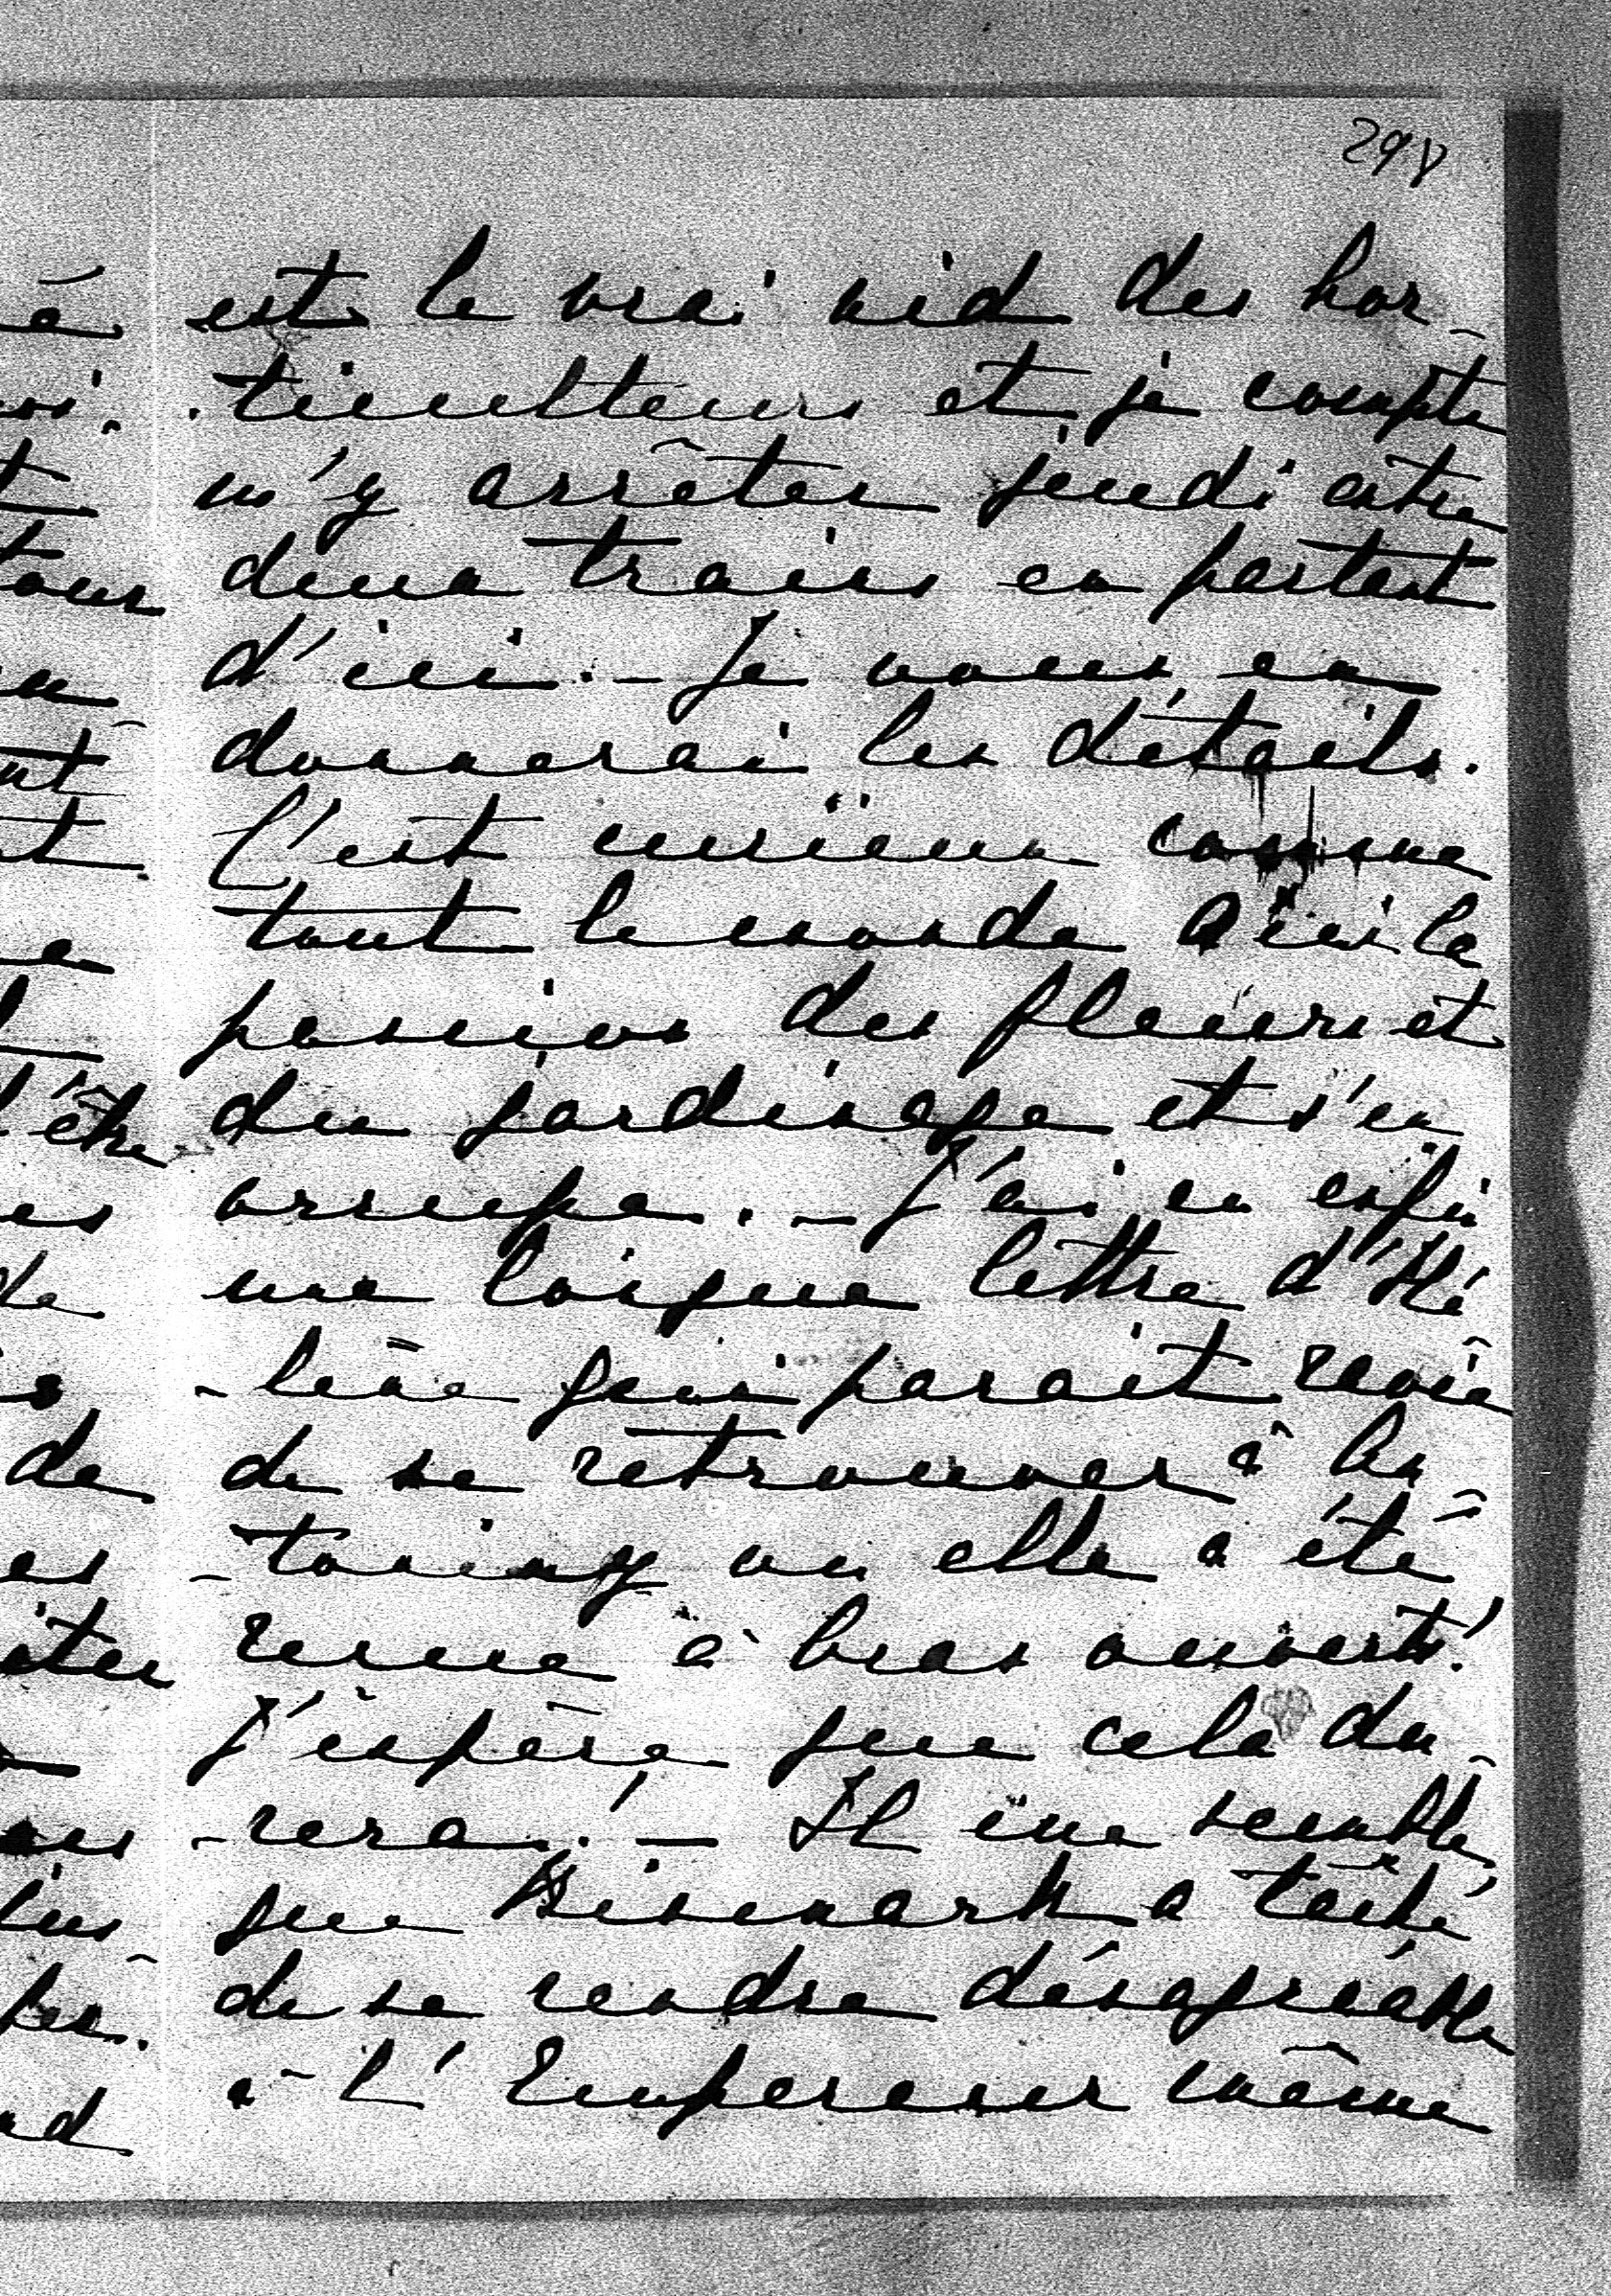 298
est le vrai nid des hor-
-ticulteurs et je compte
m'y arrêter jeudi entre
deux trains en partant
d'ici. - Je vous en
donnerai les détails.
C'est curieux comme
tout le monde a ici la
passion des fleurs et
du jardinage et s'en
occupe. - J'ai eu enfin
une longue lettre d'Hé
-lène qui parait ravie
de se retrouver à An
-toniny ou elle a été
recue à bras ouverts!
J'espère que cela du-
-rera. - Il me semble
que Bismark a taché
de se rendre désagréable
à L'Empereur même